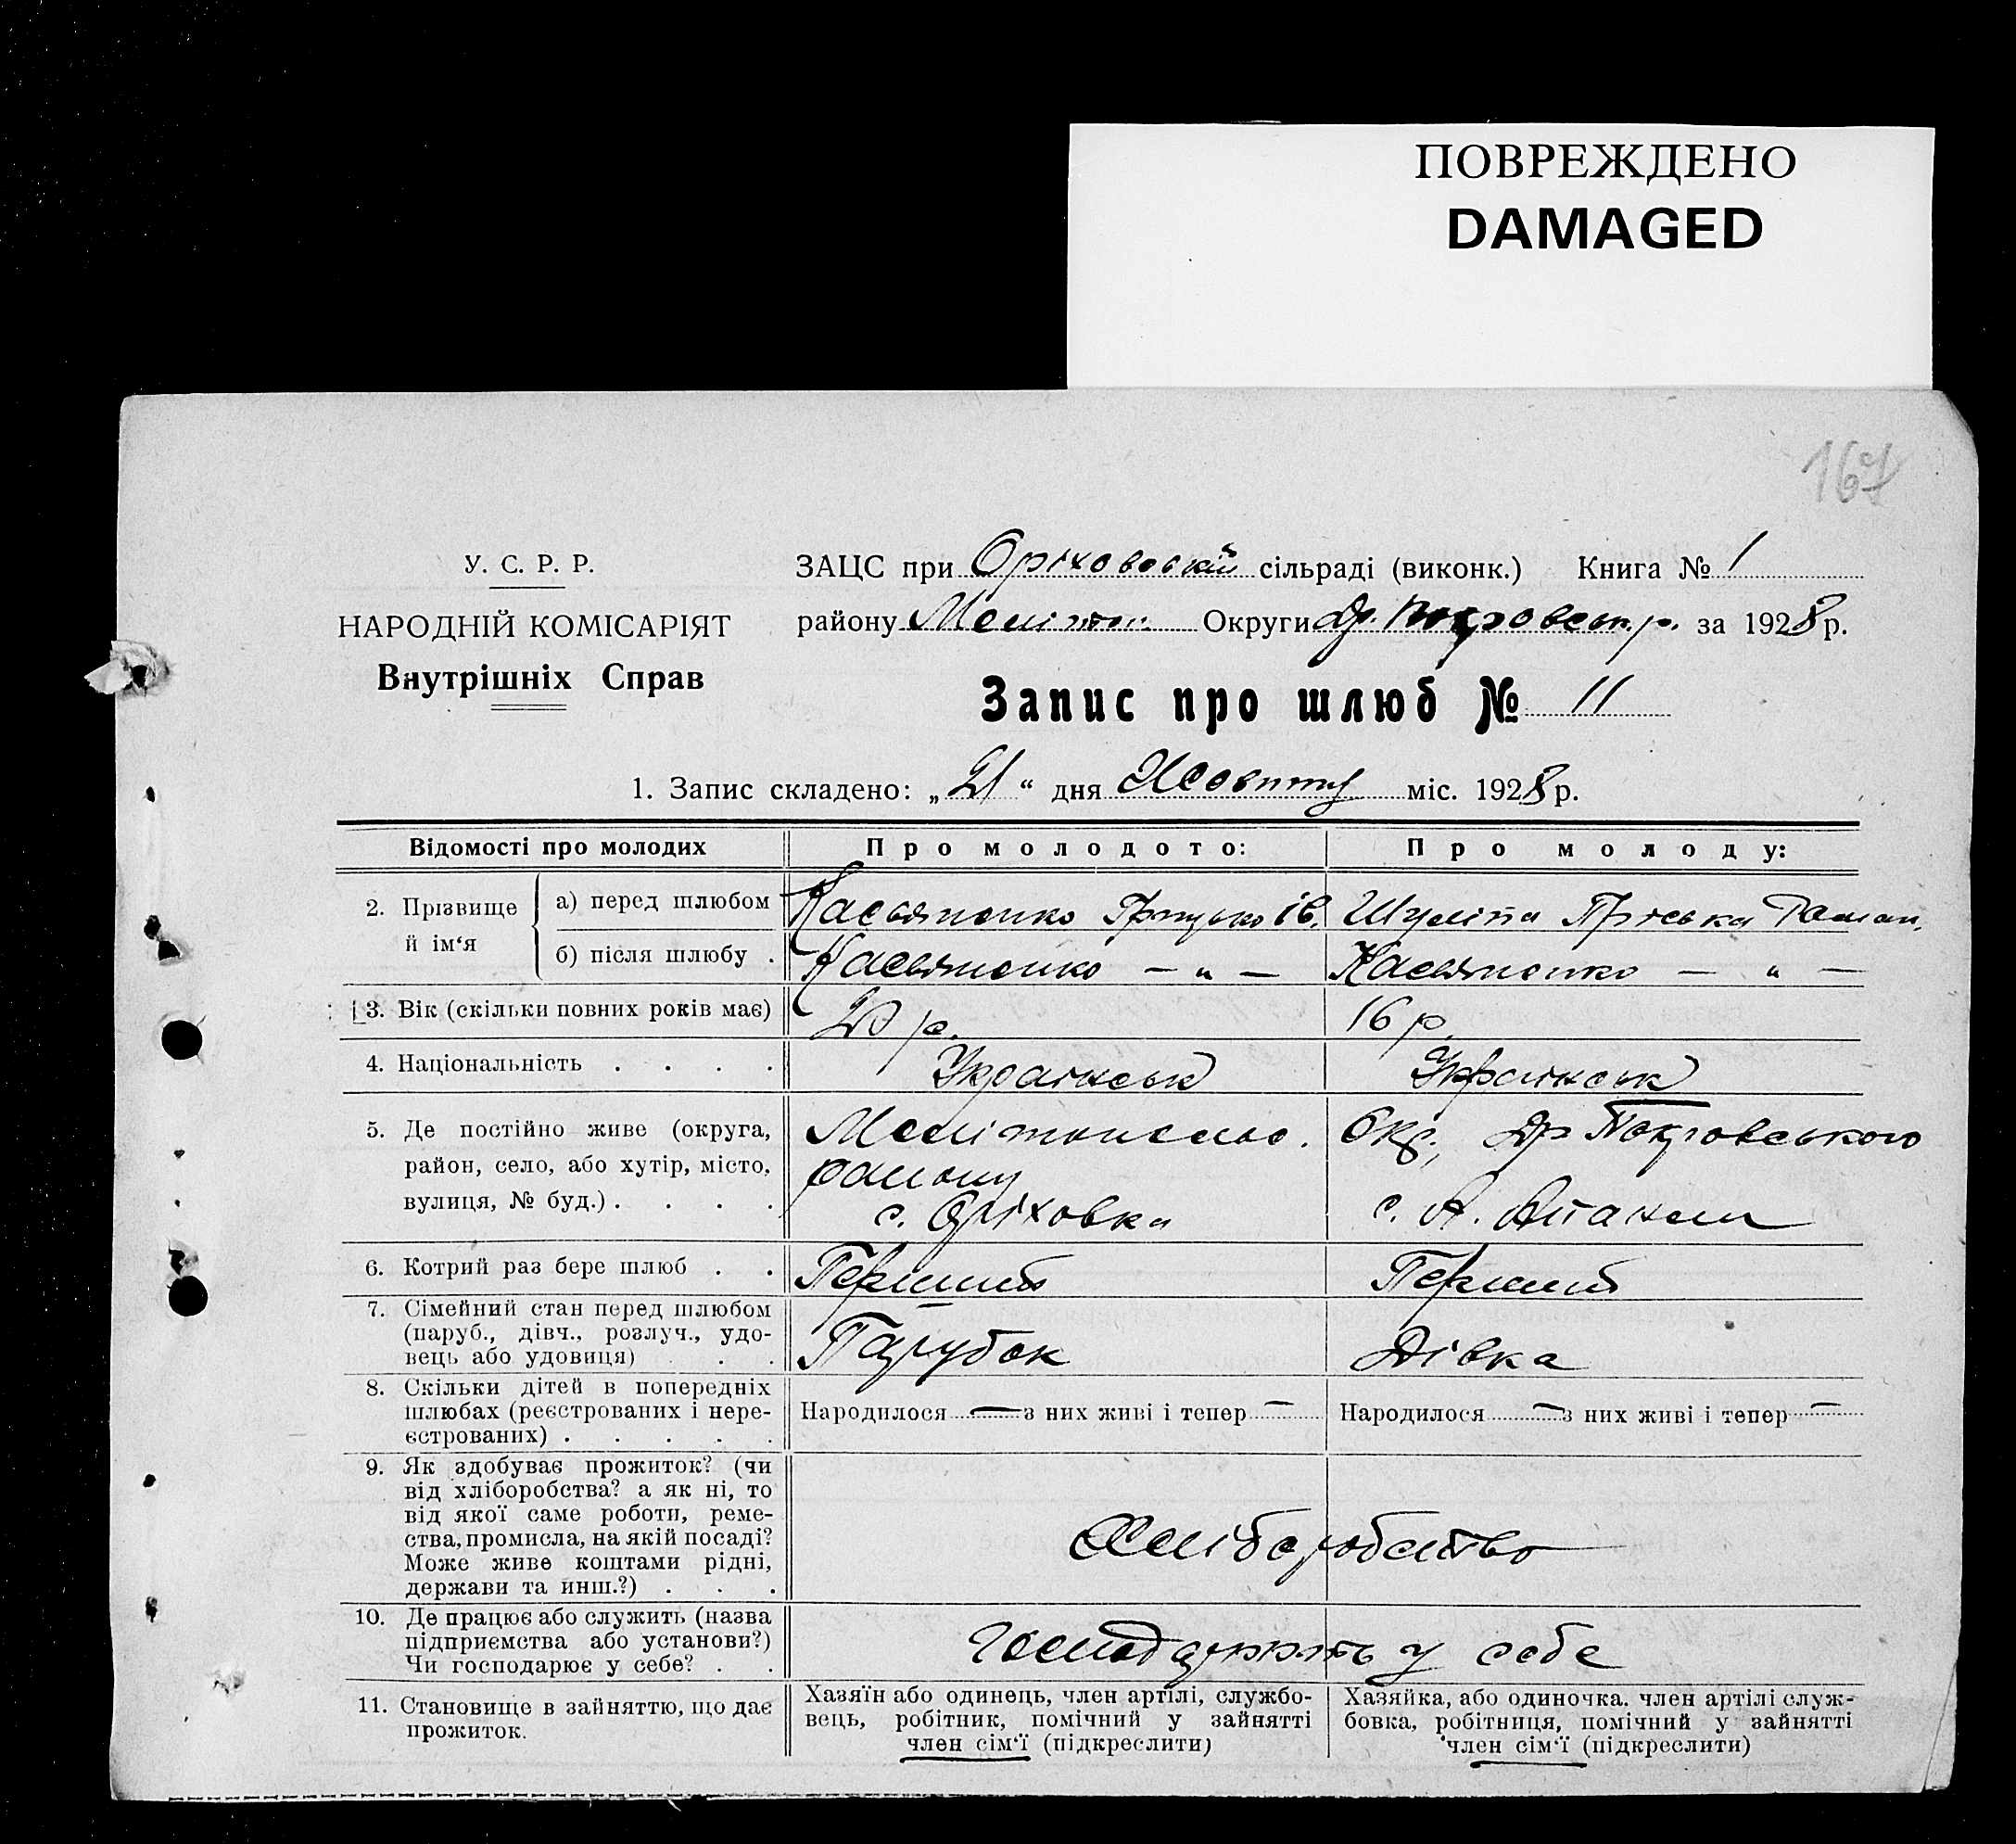 ПОВРЕЖДЕНО
DAMAGED
167
У. С. Р. Р.
НАРОДНІЙ КОМІСАРІЯТ
Внутрішніх Справ
ЗАЦС при Оріховській сільраді (виконк.) Книга № 1
району Мелітоп. Округи Др. Покровськ. р. за 1928 р.
Запис про шлюб № 11
1. Запис складено: „21“ дня Жовтня міс. 1928 р.
Відомості про молодих
Про молодого:
Про молоду:
2. Прізвище й ім‘я
а) перед шлюбом
Касьяненко Грицько Ів.
Шуліпа Пріська Таман.
б) після шлюбу .
Касьяненко — „ —
Касьяненко — „ —
3. Вік (скільки повних років має)
20 р.
16 р.
4. Національність . . . .
Українськ
Українськ
5. Де постійно живе (округа,
район, село, або хутір, місто,
вулиця, № буд.) . . . .
Мелітопольс. Окр., Др Покровського
району
с. Оріховка
с. А.
6. Котрий раз бере шлюб . .
Перший
Перший
7. Сімейний стан перед шлюбом
(паруб., дівч., розлуч., удо-
вець або удовиця) . . .
Парубок
Дівка
8. Скільки дітей в попередніх
шлюбах (реєстрованих і нере-
єстрованих) . . . . .
Народилося — з них живі і тепер —
Народилося — з них живі і тепер —
9. Як здобуває прожиток? (чи
від хліборобства? а як ні, то
від якої саме роботи, реме-
ства, промисла, на якій посаді?
Може живе коштами рідні,
держави та инш.?) . . .
Хліборобство
10. Де працює або служить (назва
підприємства або установи?)
Чи господарює у себе? . .
Господарюють у себе
11. Становище в зайняттю, що дає
прожиток.
Хазяїн або одинець, член артілі, службо-
вець, робітник, помічний у зайнятті
член сім‘ї (підкреслити)
Хазяйка, або одиночка. член артілі служ-
бовка, робітниця, помічний у зайнятті
член сім‘ї (підкреслити)